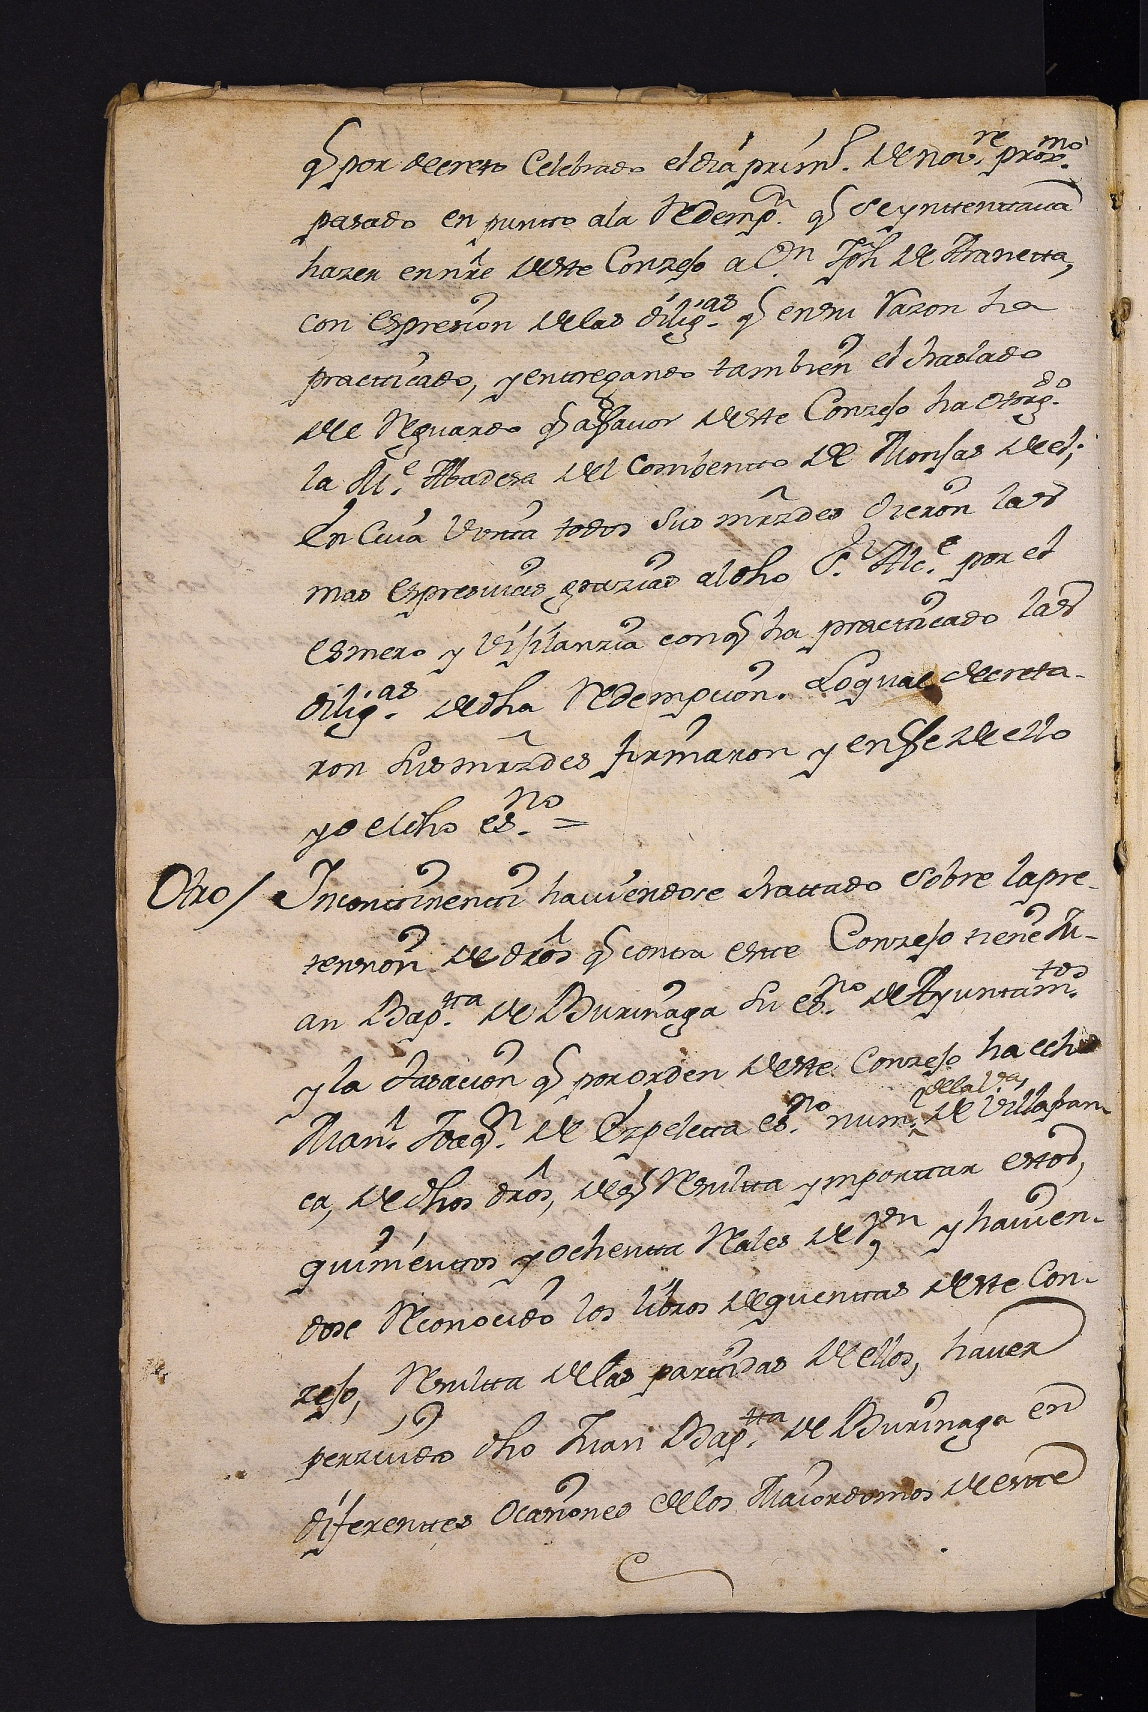 q̃ por decreto Celebrado el dia prim.º de nov.re prox.mo
pasado en puntto a la Redemp.n q̃ se ynttenttaua
hazer en nr̃e deste Conzejo a D.n Jph de Aranetta,
con espresion de las dilig.as q̃ en su Razon ha
practticado, y entregando tambien el traslado
de Resguardo q̃ a ffavor deste Conzejo ha otorg.do
la M.e Abadesa del Combentto de Monjas de el;
En Cuia Vontta todos sus mrz̃des dieron las
mas espresiuas grazias al dho S.r Alc.e por el
esmero y Vijilanzia con q̃ ha practticado las
dilig.as de dha Redempcion. Lo qual decreta-
ron sus mrz̃des firmaron y en ffe de ello
yo el dho es.no =
Otro / Inconttinentti hauiendose trattado sobre la pre-
tension de dr̃os q̃ contra estte Conzejo tiene Ju-
an Bap.tta de Burinaga su es.no de Ayuntam.tos
y la tasacion q̃ por orden deste Conzejo ha echo
Man.l Joaq.n de Ezpeletta es.no num.l de la V.a de Villafran-
ca, de dhos dr̃os, de q̃ Resultta ymporttar estos,
quinienttos y ochentta Reales de V.n y hauien-
dose Reconocido los libros de quenttas deste Con-
zejo, Resultta de las parttidas de ellos, hauer
perzluido dho Juan Bap.tta de Burinaga en
diferenttes ocasiones de los Maiordomos de estte